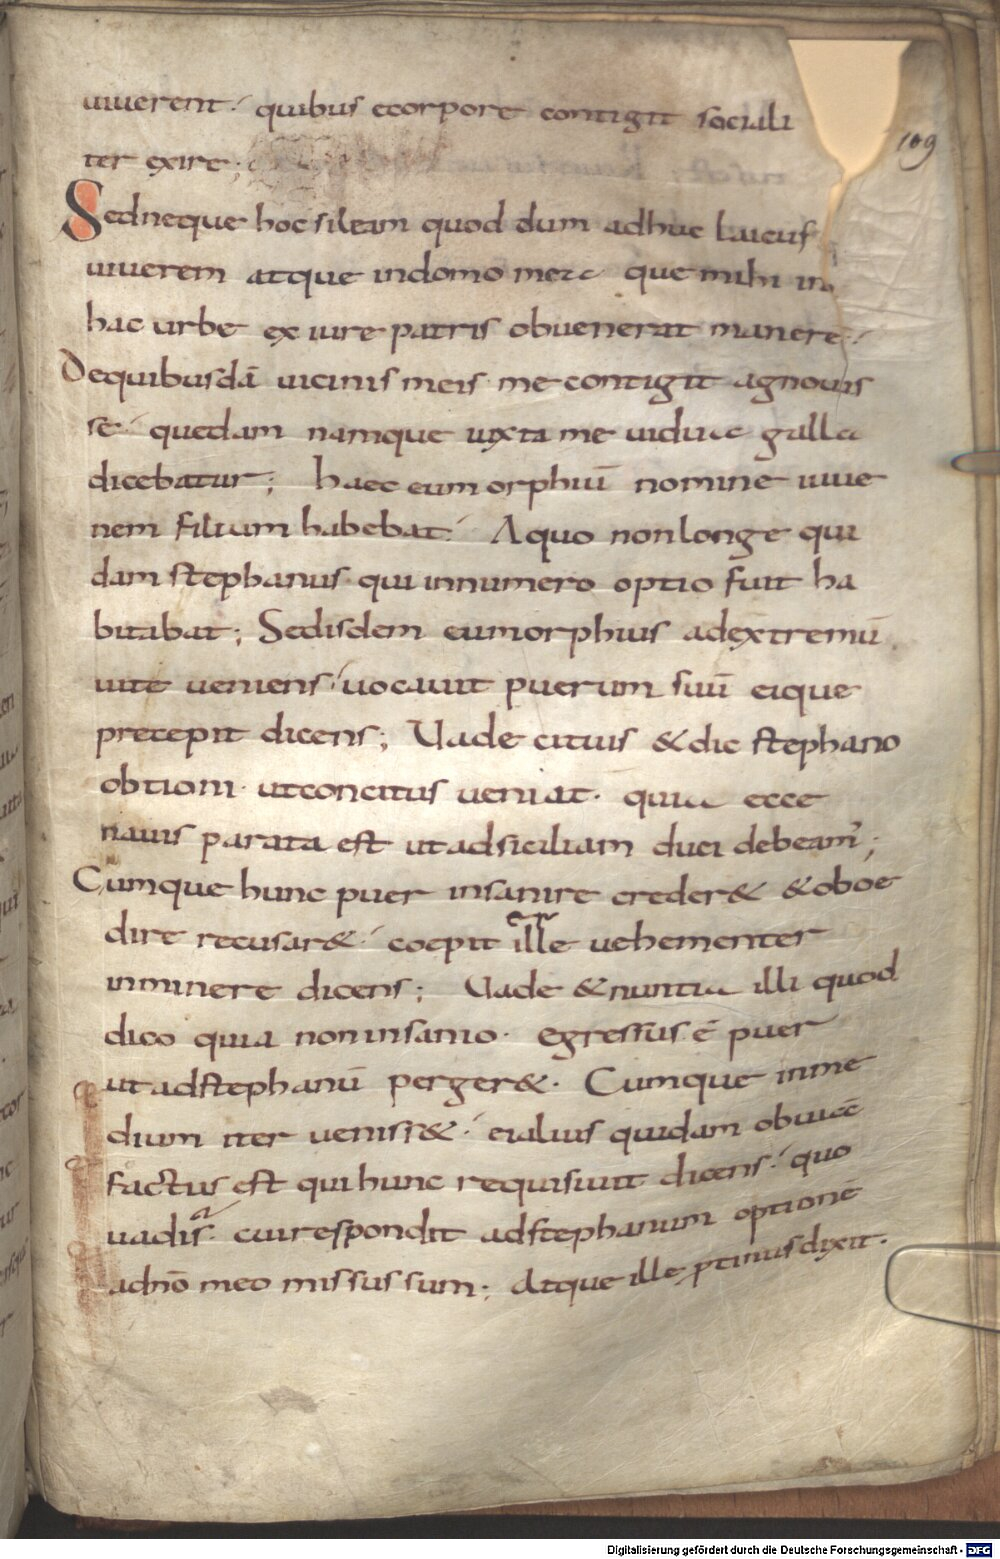 uiuerent· quibus ecorpore contigit sociali
109
ter exire;
Sedneque hoc sileam quod dum adhuc laicus
uiuerem atque indomo mea que mihi in
hac urbe ex iure patris obuenerat manere·
Dequibusdā uicinis meis me contigit agnouis
se· quedam namque iuxta me uidua galla
dicebatur; haec eumorphiū nomine iuue
nem filium habebat· A quo non longe qui
dam stephanus qui innumero optio fuit ha
bitabat; Sedisdem eumorphius adextremū
uite ueniens· uocauit puerum suū eique
precepit dicens; Uade citius & dic stephano
obtioni· utconcitus ueniat· quia ecce
nauis parata est ut adsiciliam duci debeam';
Cumque hunc puer insanire creder& & oboe
dire recusar&· coepit ille uehementer
inminere dicens; Uade & nuntia illi quod
dico quia non insanio· egressus ē puer
ut adstephanū perger&· Cumque inme
dium iter uenisset&· ei alius quidam obuiā
factus est qui hunc requisiuit dicens· quo
uadis· cui respondit adstephanum optionē
adnō meo missus sum; Atque ille ptinus dixit·
Digitalisierung gefördert durch die Deutsche Forschungsgemeinschaft - DFG